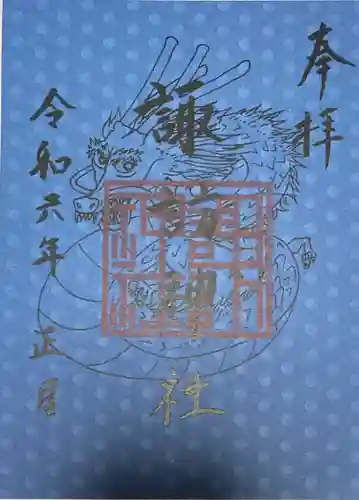 奉拝
諏訪神社
令和六年 正月